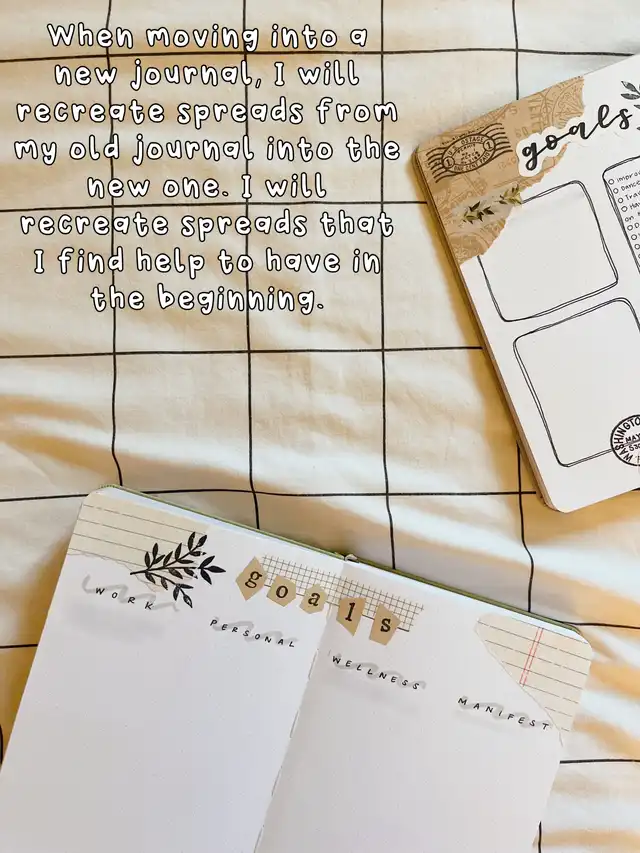 When moving into a
new journal, I will
recreate spreads from
my old journal into the
new one. I will
recreate spreads that
I find help to have in
the beginning.
goals
goals
WORK
PERSONAL
WELLNESS
MANIFEST